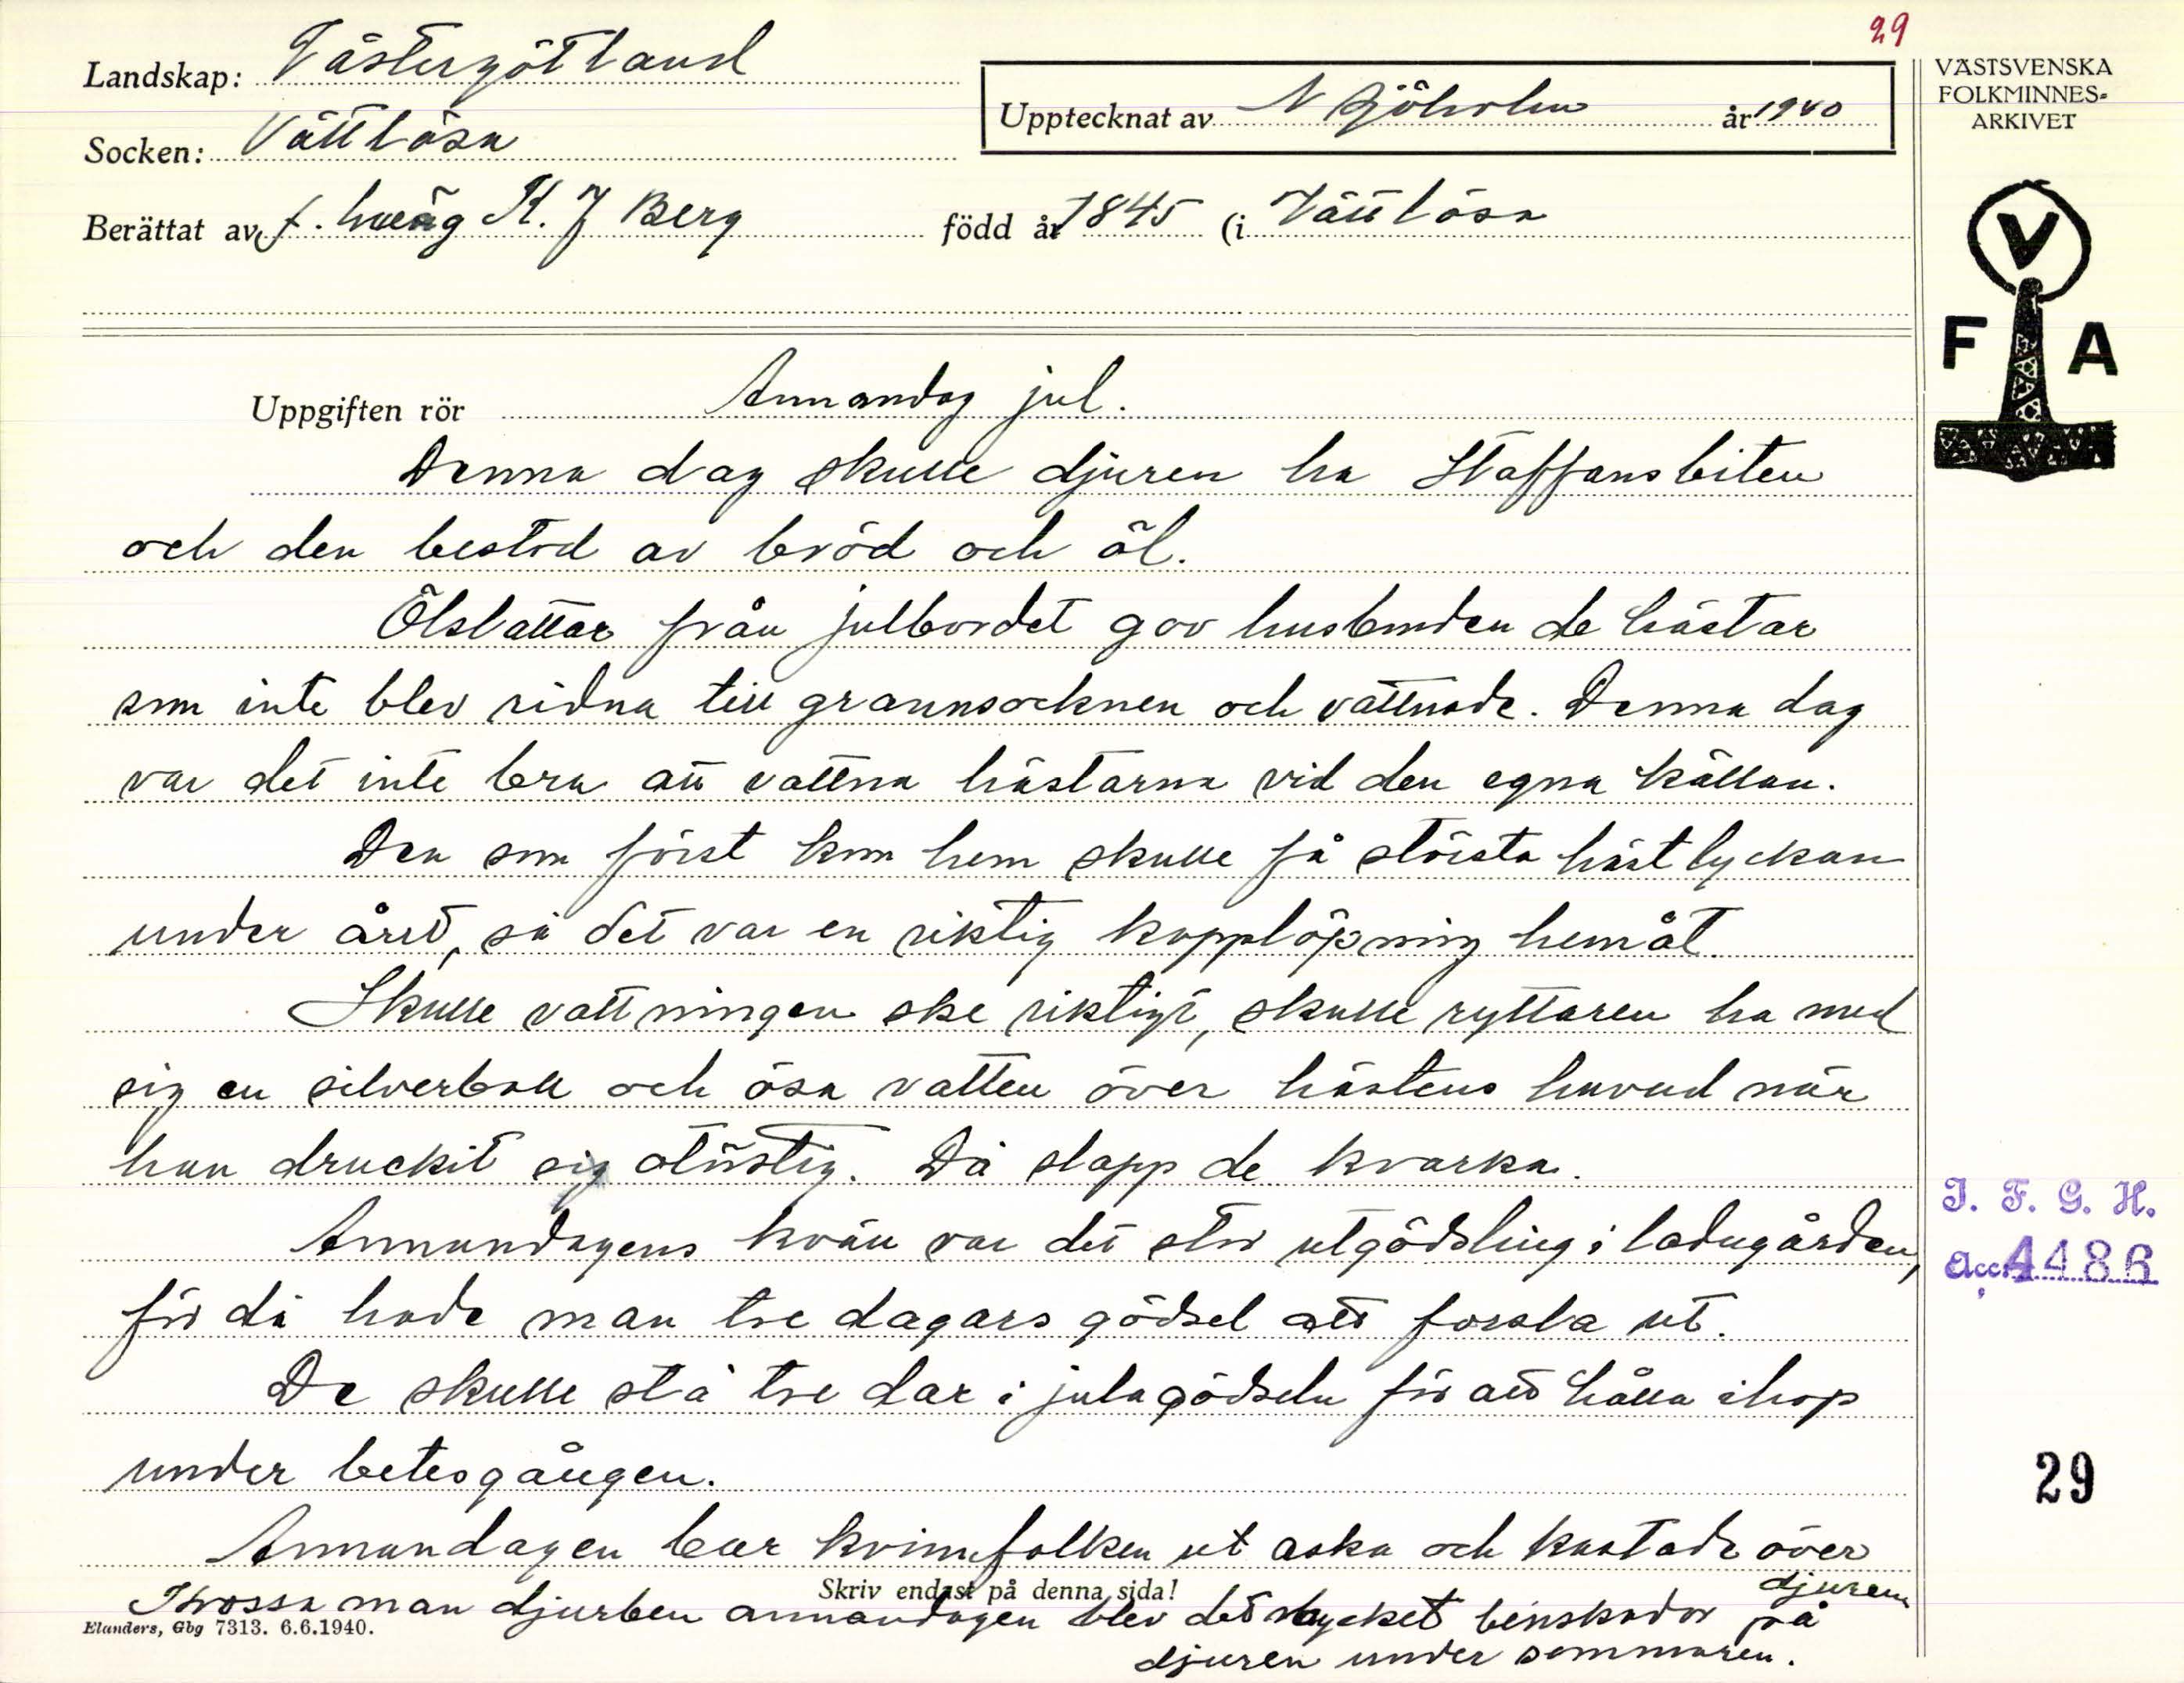 29
Landskap: Västergötland
Socken: Vättlösa
Upptecknat av N Sjöholm år 1940
Berättat av f. hmäg K. J Berg född år 1845 (i Vättlösa
VÄSTSVENSKA
FOLKMINNES-
ARKIVET
V
F A
Uppgiften rör Annandag jul.
Denna dag skulle djuren ha Staffansbiten
och den bestod av bröd och öl.
Ölslattar från julbordet gav husbonden de hästar
som inte blev ridna till grannsocknen och vattnade. Denna dag
var det inte bra att vattna hästarna vid den egna källan.
Den som först kom hem skulle få största hästlyckan
under året, så det var en riktig kapplöpning hemåt.
Skulle vattningen ske riktigt, skulle ryttaren ha med
sig en silverboll och ösa vatten över hästens huvud när
han druckit sig otörstig. Då slapp de kvarka.
Annandagens kväll var det stor utgödsling i ladugården,
för då hade man tre dagars gödsel att forsla ut.
De skulle stå tre dar i julagödseln för att hålla ihop
under betesgången.
Annandagen bar kvinnfolken ut aska och kastade över
djuren
Skriv endast på denna sida!
Krossa man djurben annandagen blev det mycket benskador på
djuren under sommaren.
Elanders, Gbg 7313. 6.6.1940.
I. F. G. H.
Acc. 4486
29